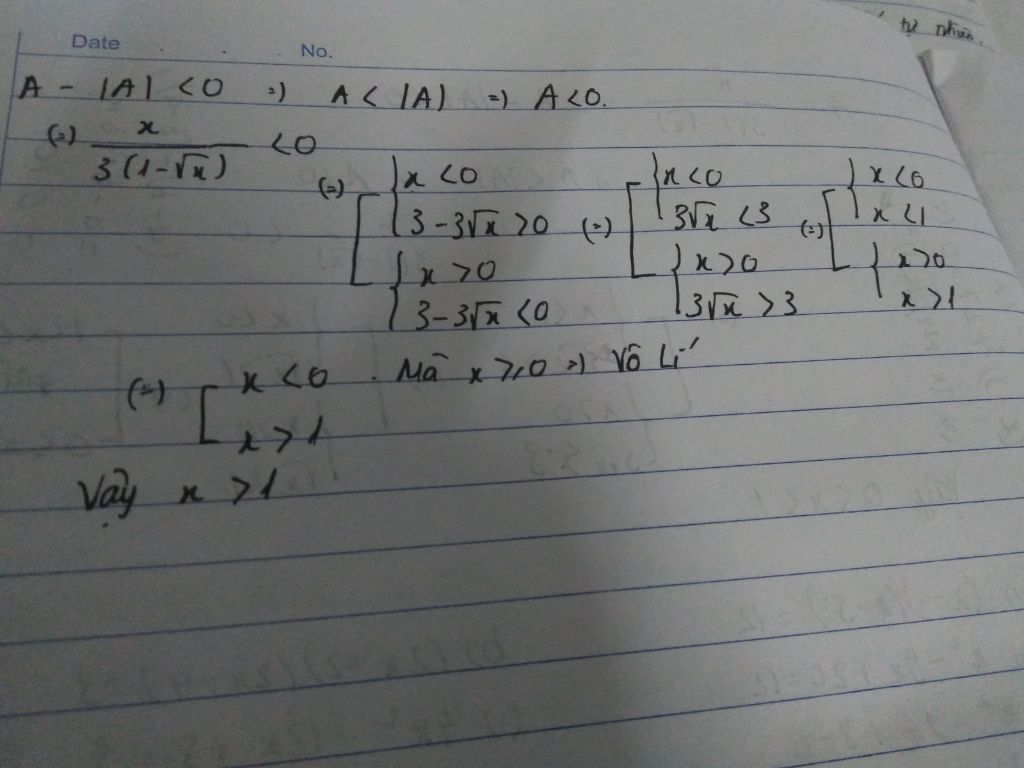 tự nhiên.
Date No.
A - |A| < 0 => A < |A| => A < 0.
(=) x / 3(1-√x) < 0
(=) [ { x < 0 ; 3 - 3√x > 0 { x > 0 ; 3 - 3√x < 0 (=) [ { x < 0 ; 3√x < 3 { x > 0 ; 3√x > 3 (=) [ { x < 0 ; x < 1 { x > 0 ; x > 1
(=) [ x < 0 . Mà x ≥ 0 => Vô lí
x > 1
Vậy x > 1